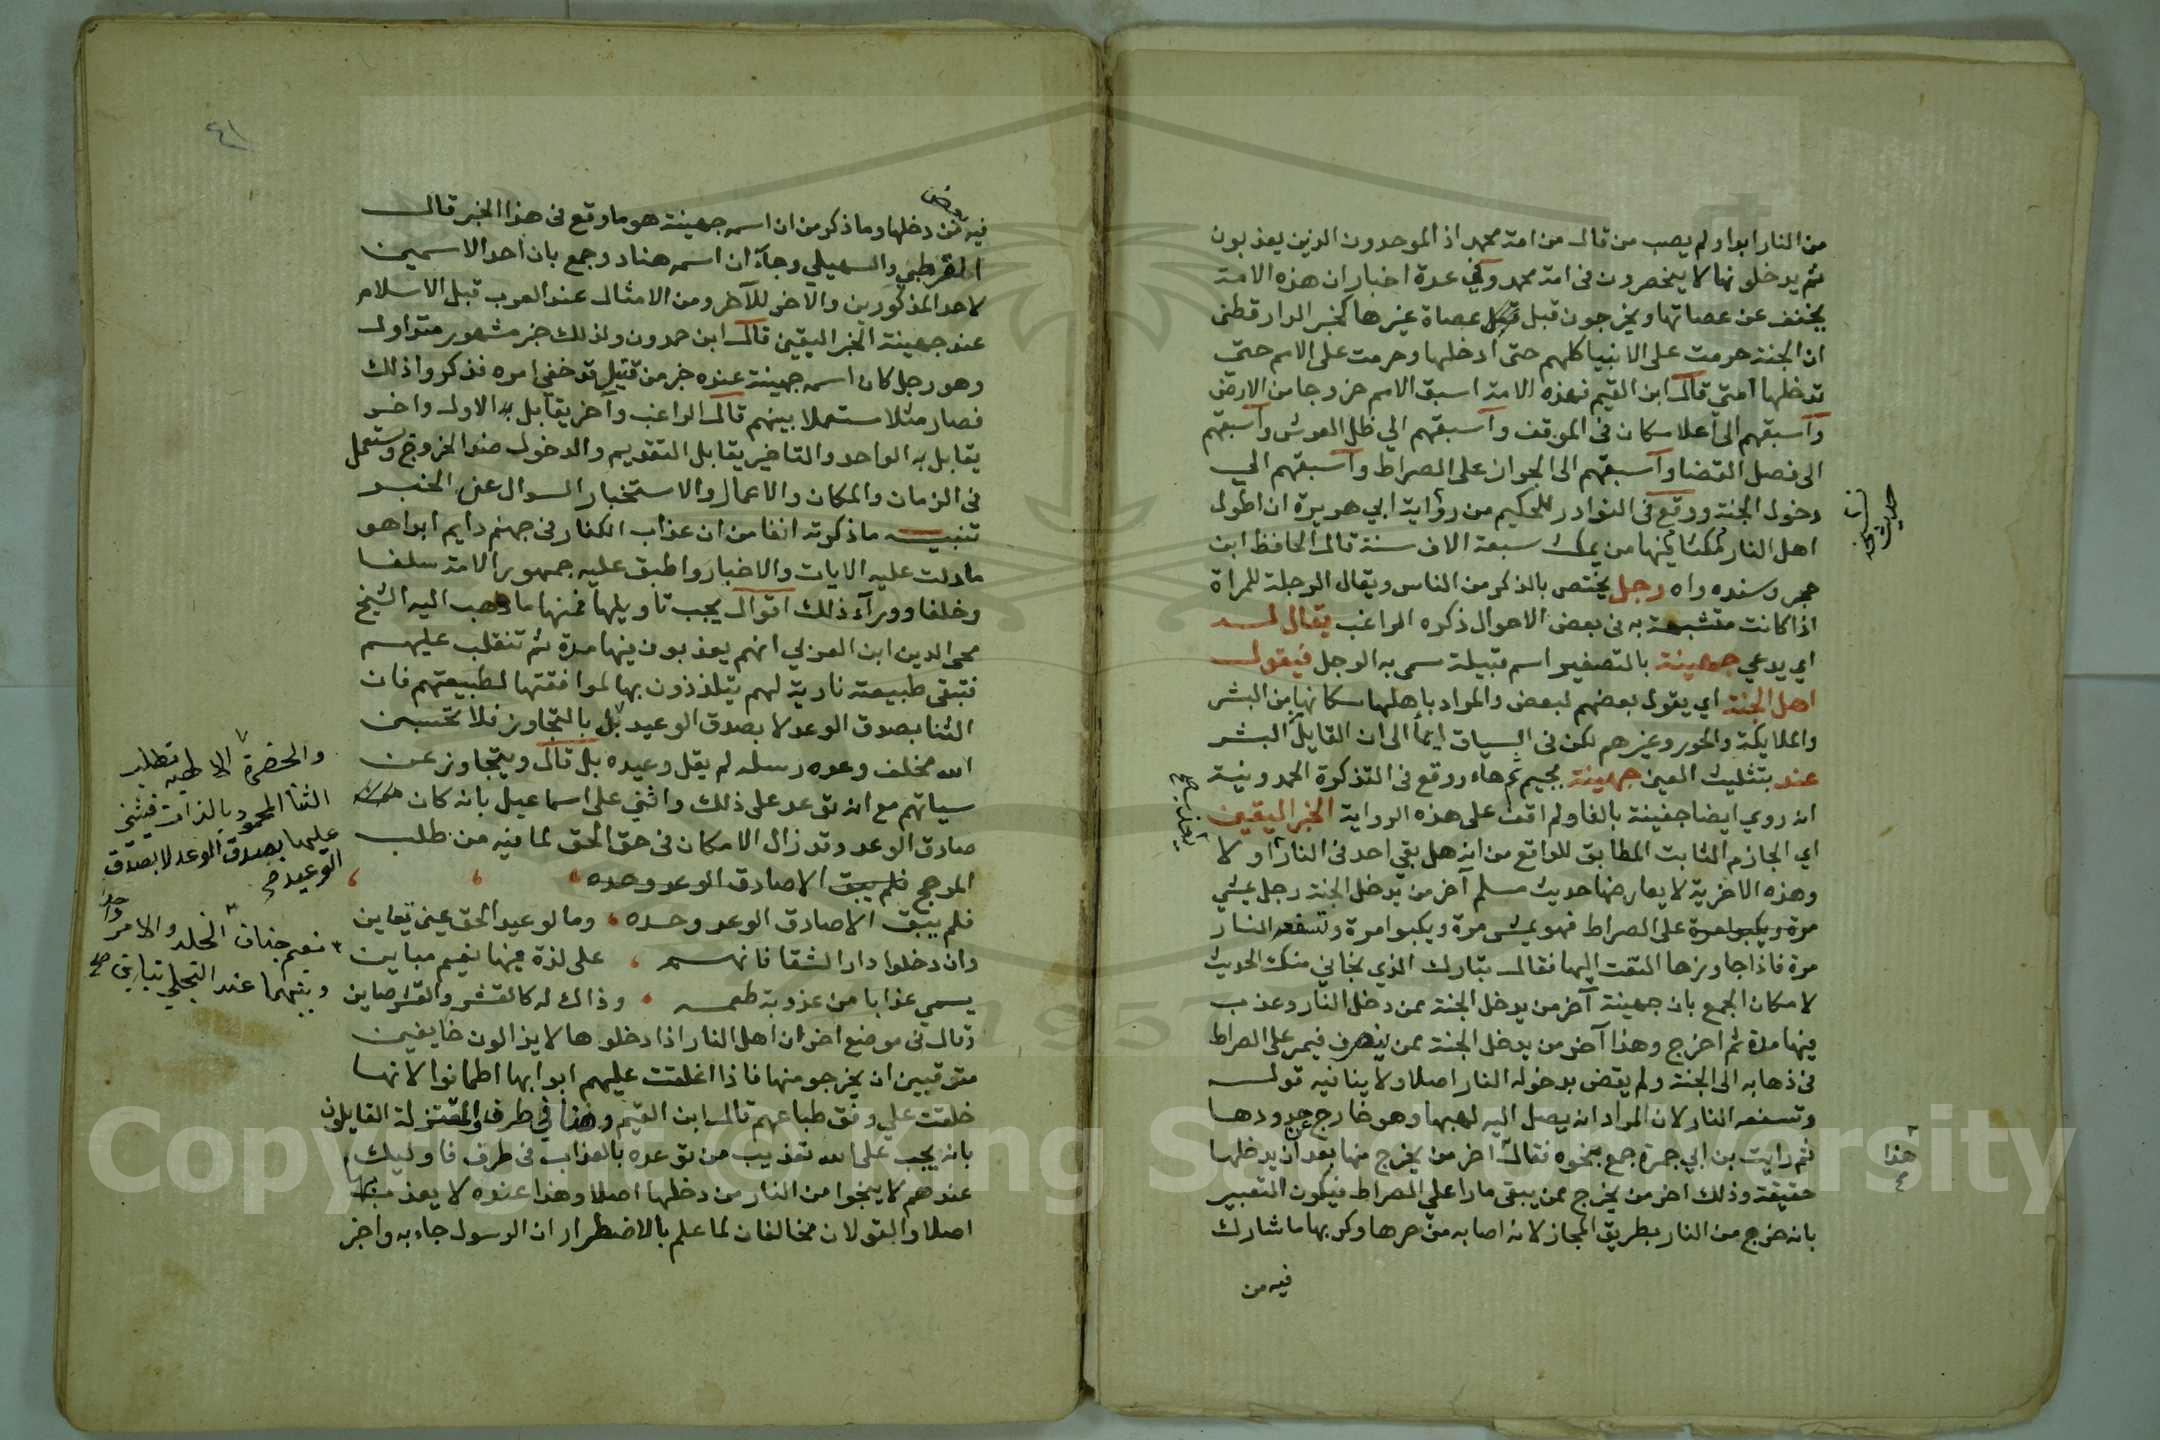 من النار ابدا ولم يصب من قال من امة محمد اذ الموحدون الذين يعذبون
ثم يدخلونها لا ينحصرون في امة محمد وفي عدة اخبار ان هذه الامة
يخفف عن عصاتها ويخرجون قبل عصاة غيرها كخبر الدارقطني
ان الجنة حرمت على الانبيا كلهم حتى ادخلها وحرمت على الامم حتى
تدخلها امتي قال ابن القيم فهذه الامة اسبق الامم خروجا من الارض
وآسبقهم الى أعلا مكان في الموقف وآسبقهم الي ظل العرش وآسبقهم
الى فصل القضا وآسبقهم الى الجواز على الصراط وآسبقهم الي
دخول الجنة ووقع في النوادر للحكيم من رواية ابي هريرة ان اطول
اهل النار مكثا فيها من يمكث سبعة الاف سنة قال الحافظ ابن
حجر وسنده واه رجل يختص بالذكر من الناس ويقال الرجلة للمراة
اذا كانت متشبهة به في بعض الاحوال ذكره الراغب يقال لـه
اي يدعي جهينة بالتصغير اسم قبيلة سمى به الرجل فيقول
اهل الجنة اي يقول بعضهم لبعض والمراد باهلها سكانها من البشر
والملايكة والحور وغيرهم لكن في السياق ايما الى ان القايل البشر
عند بتثليث العين جهينة بجيم ثم هاء ووقع في التذكرة الحمدونية
انه روي ايضا جفينة بالفا ولم اقف على هذه الرواية الخبر اليقين
اي الجازم الثابت المطابق للواقع من انه هل بقي احد في النار او لا
وهذه الاخرية لا يعارضها حديث مسلم آخر من يدخل الجنة رجل يمشي
مرة ويكبوا مرة على الصراط فهو يمشى مرة ويكبوا مرة وتسفعه النار
مرة فاذا جاوزها التفت اليها فقال تبارك الذي نجاني منك الحديث
لامكان الجمع بان جهينة آخر من يدخل الجنة ممن دخل النار وعذب
فيها مدة ثم اخرج وهذا آخر من يدخل الجنة ممن ينصرف فيمر على الصراط
في ذهابه الى الجنة ولم يقض بدخوله النار اصلا ولا ينافيه قوله
وتسفعه النار لان المراد انه يصل اليه لهبها وهو خارج عن حدودها
ثم رايت بن ابي جمرة جمع بنحوه فقال آخر من يخرج منها بعد ان يدخلها
حقيقة وذلك اخر من يخرج ممن يبقى مارا علي الصراط فيكون التعبير
بانه خرج من النار بطريق المجاز لانه اصابه من حرها وكربها ما شارك
فيه من
هذا
٤١
فيه من دخلها وما ذكر من ان اسمه جهينة هو ما وقع في هذا الخبر قال
القرطبي والسهيلي وجآء ان اسمه هناد وجمع بان احد الاسمين
لاحد المذكورين والاخر للآخر ومن الامثال عند العرب قبل الاسلام
عند جهينة الخبر اليقين قال ابن حمدون ولذلك خبر مشهور متداول
وهو رجل كان اسمه جهينة عنده خبر من قتيل قد خفي امره فذكروا ذلك
فصار مثلا مستعملا بينهم قال الراغب وآخر يقابل به الاول واخر
يقابل به الواحد والتاخير يقابل التقديم والدخول ضد الخروج ويستعمل
في الزمان والمكان والاعمال والاستخبار السوال عن الخبر
تنبيه ما ذكرته انفا من ان عذاب الكفار في جهنم دايم ابدا هو
ما دلت عليه الايات والاخبار واطبق عليه جمهور الامة سلفا
وخلفا ووراء ذلك اقوال يجب تاويلها فمنها ما ذهب اليه الشيخ
محي الدين ابن العربي انهم يعذبون فيها مدة ثم تنقلب عليهم
فتبقى طبيعة نارية لهم يتلذذون بها لموافقتها لطبيعتهم فان
الثنا بصدق الوعد لا بصدق الوعيد بل بالتجاوز فلا تحسبن
الله مخلف وعده رسله لم يقل وعيده بل قال ويتجاوز عن
سياتهم مع انه توعد على ذلك واثني على اسماعيل بانه كان
صادق الوعد وقد زال الامكان في حق الحق لما فيه من طلب
المرجح فلم يبق الا صادق الوعد وحده
فلم يبق الا صادق الوعد وحده ، وما لوعيد الحق عين تعاين
وان دخلوا دار الشقا فانهم ، على لذة فيها نعيم مباين
يسمي عذابا من عذوبة طعمه ، وذاك له كالقشر والقشر صاين
وقال في موضع اخر ان اهل النار اذا دخلوها لا يزالون خايفين
متوقبين ان يخرجو منها فاذا اغلقت عليهم ابوابها اطمانوا لانها
خلقت علي وفق طباعهم قال ابن القيم وهذا في طرف والمعتزلة القايلون
بانه يجب على الله تعذيب من توعده بالعذاب في طرف فاوليك
عندهم لا ينجوا من النار من دخلها اصلا وهذا عنده لا يعذب بها
اصلا والقولان مخالفان لما علم بالاضطرار ان الرسول جاء به واخبر
والحضرة الالهية تطلب
الثنا المحمود بالذات فيثني
عليها بصدق الوعد لا بصدق
الوعيد صح
نعيم جنان الخلد والامر واحد
وبينهما عند التجلي تباين صح